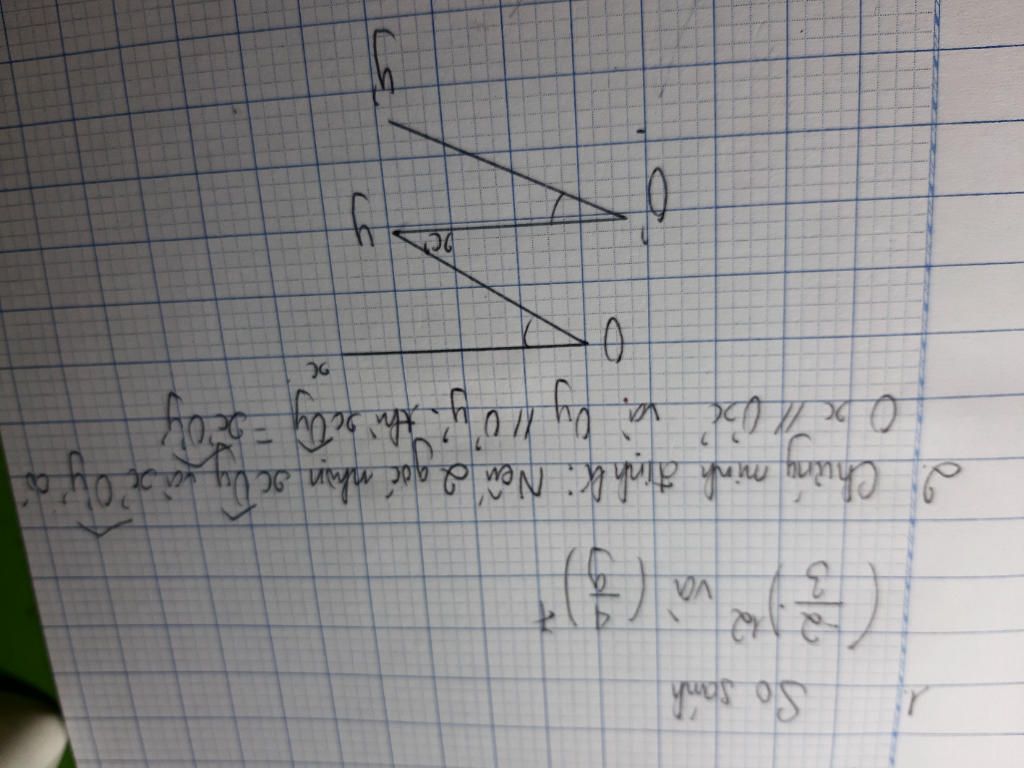 1. So sánh
(-2/3)12 và (4/9)7
2. Chứng minh định lí: Nếu 2 góc nhọn xOy và x'O'y' có
Ox // O'x' và Oy // O'y' thì xOy = x'Oy
x
O
x'
y
O'
y'